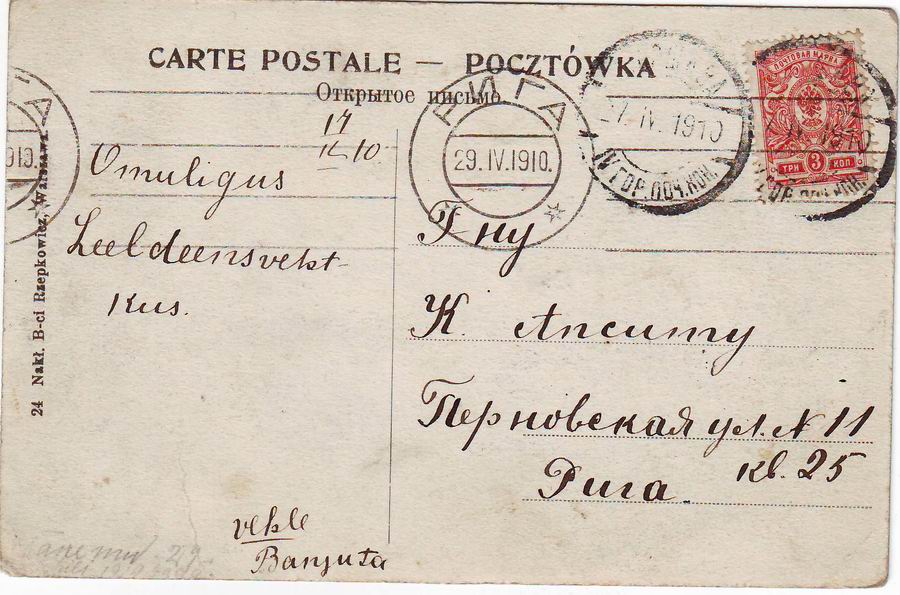 CARTE POSTALE — POCZTÓWKA
Открытое письмо
17
IV 10.
Omuligus
Leeldeensvekt
kus.
vekle
Banjuta
24 Nakł. B-ci Rzepkowicz, Warszawa
РИГА
29.IV.1910.
IV.1910
IV ГОР.ПОЧ.КОН.
ПОЧТОВАЯ МАРКА
ТРИ 3 КОП
1910
Гну
К. Апситу
Перновская ул. N 11
кв. 25
Рига